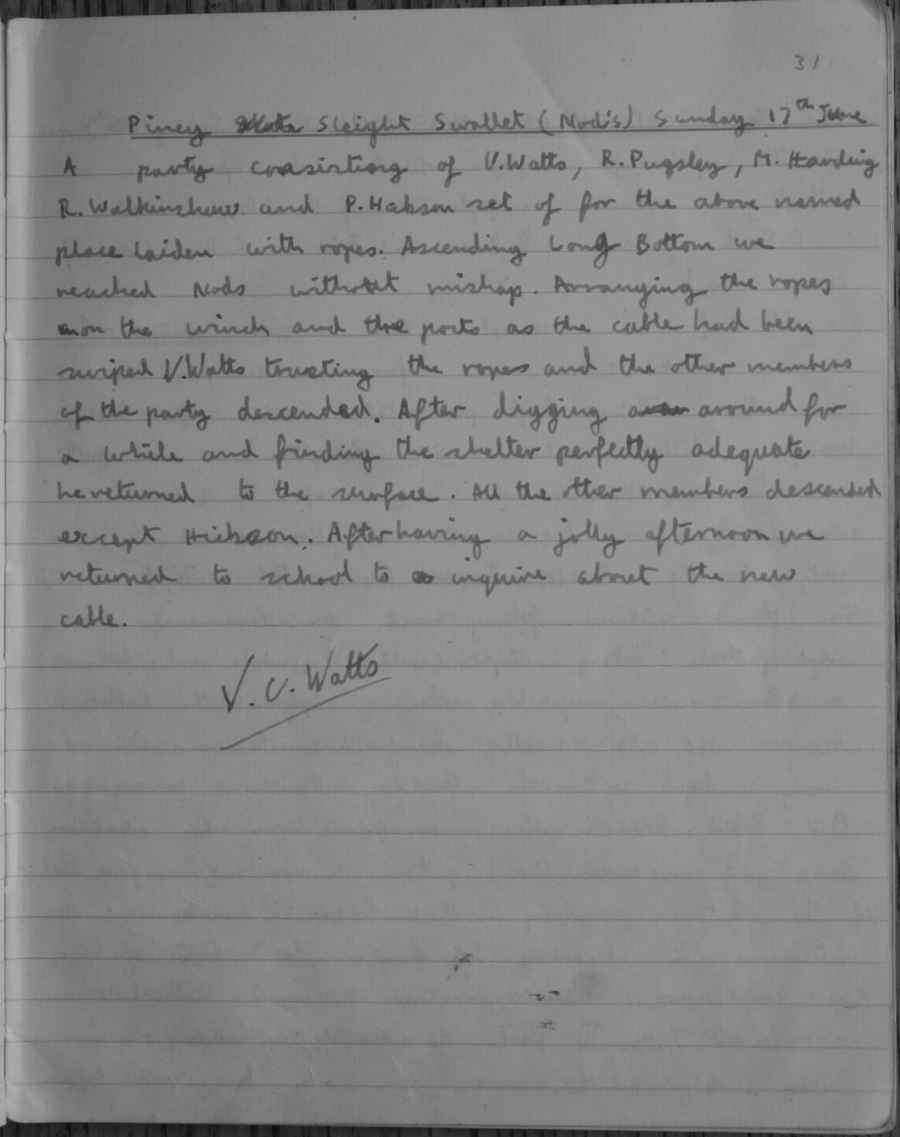 31
Piney Sleight Swallet (Nod's) Sunday 17th June
A party consisting of V.Watts, R. Pugsley, M. Harding
R. Walkinshaw and P. Hakson set of for the above named
place laiden with ropes. Ascending Long Bottom we
reached Nods without mishap. Arranging the ropes
on the winch and the posts as the cable had been
swiped V.Watts trusting the ropes and the other members
of the party descended. After digging around for
a while and finding the shelter perfectly adequate
he returned to the surface. All the other members descended
except Hickson. After having a jolly afternoon we
returned to school to inquire about the new
cable.
V. C. Watts